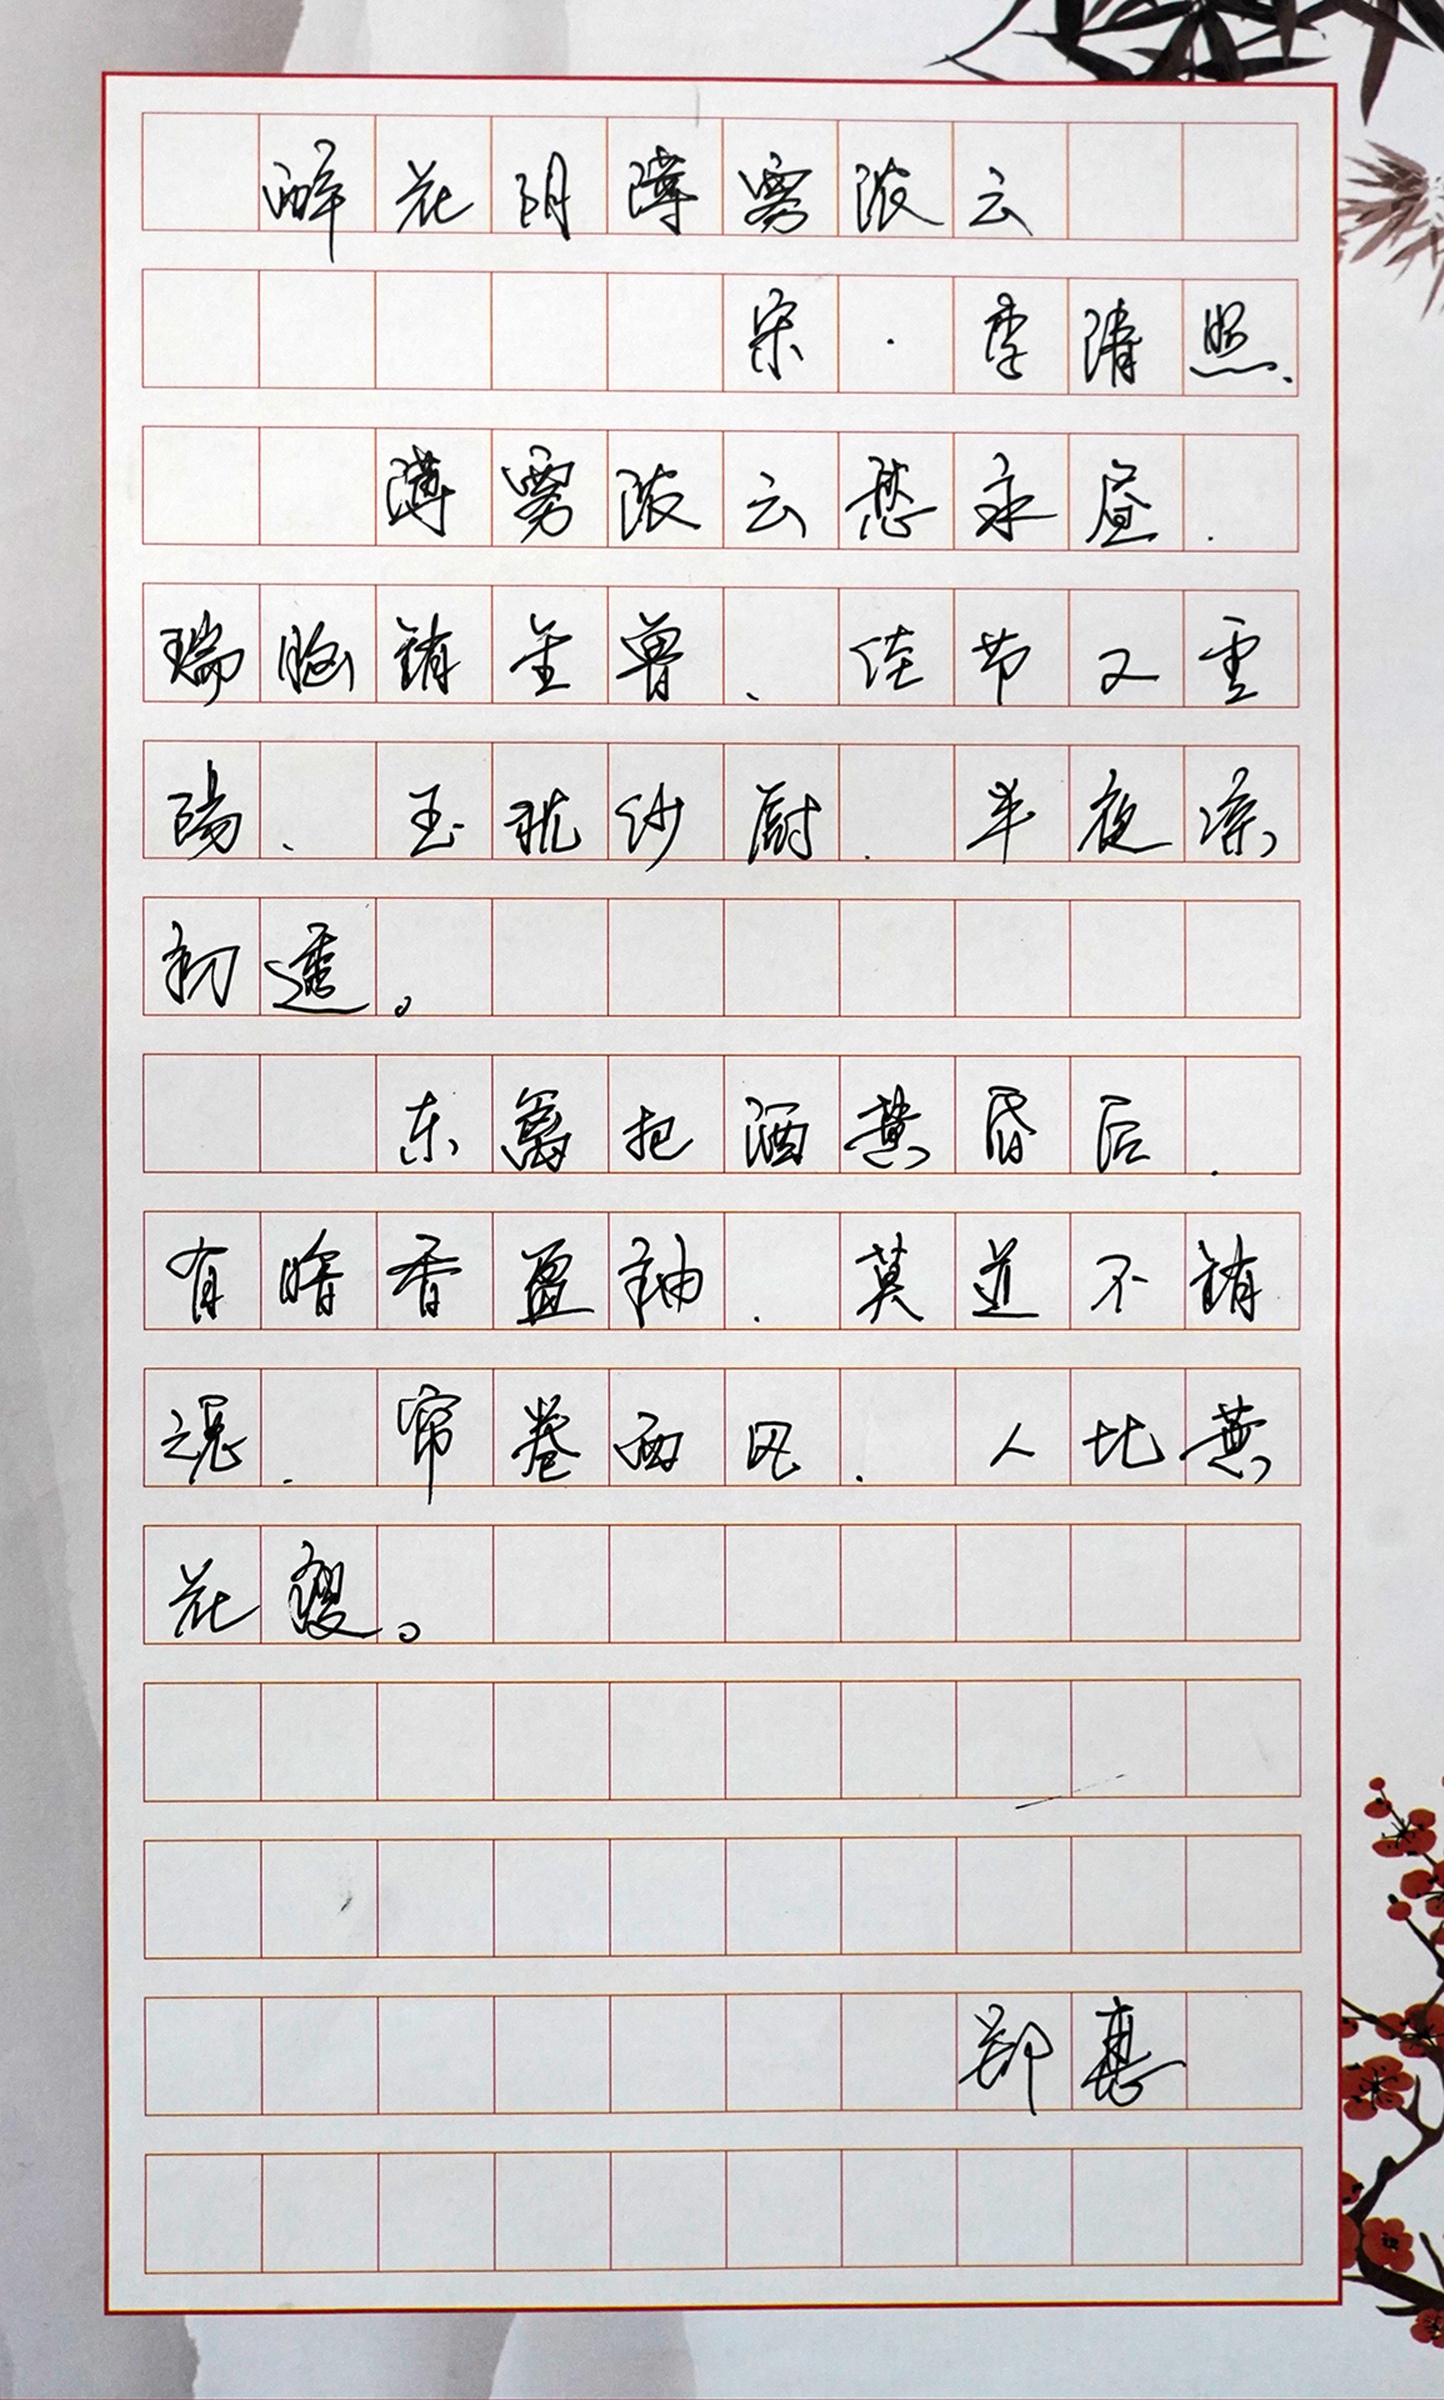 醉花阴薄雾浓云
宋·李清照.
薄雾浓云愁永昼.
瑞脑销金兽、佳节又重
阳、玉枕纱厨.半夜凉
初透。
东篱把酒黄昏后.
有暗香盈袖.莫道不销
魂.帘卷西风.人比黄
花瘦。
郑惠